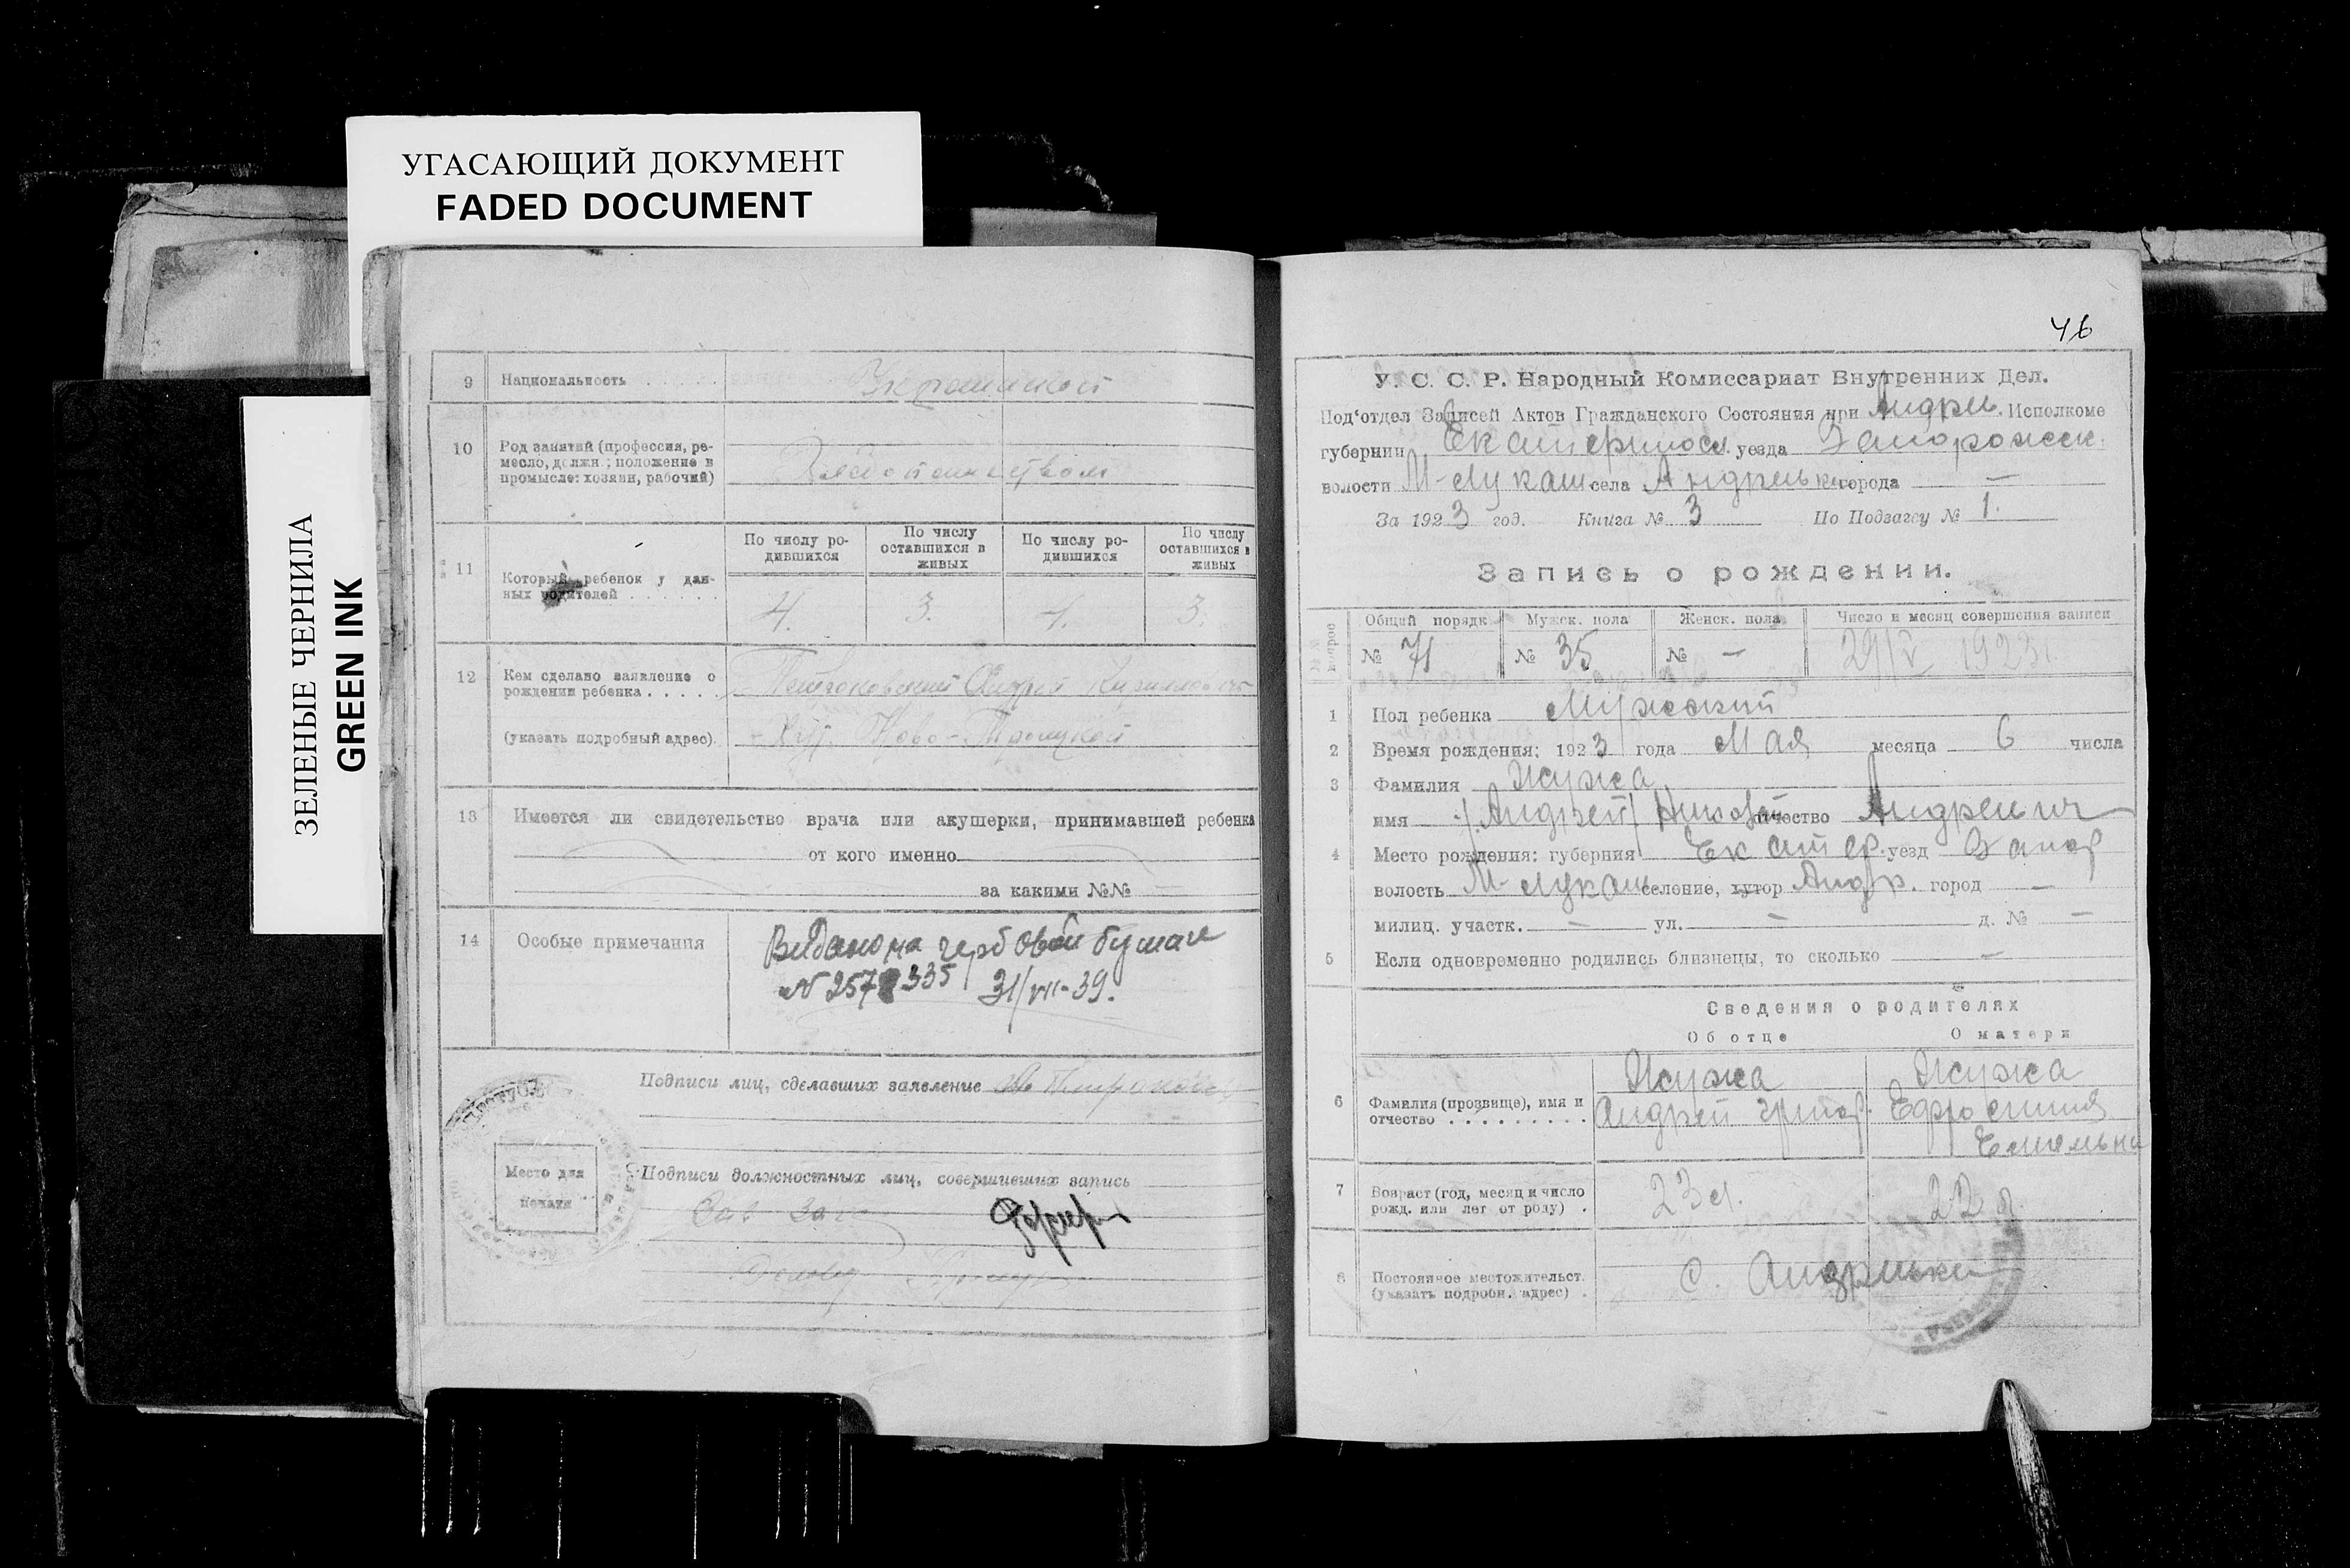 УГАСАЮЩИЙ ДОКУМЕНТ
FADED DOCUMENT
ЗЕЛЕНЫЕ ЧЕРНИЛА
GREEN INK
9 Национальность
10 Род занятий (профессия, ре-
месло, должн.; положение в
промысле: хозяин, рабочий)
11 Который ребенок у дан-
ных родителей
По числу ро-
дившихся
По числу
оставшихся в
живых
По числу ро-
дившихся
По числу
оставшихся в
живых
4. 3. 4. 3.
12 Кем сделано заявление о
рождении ребенка
(указать подробный адрес).
Хут. Ново-Троицкой
13 Имеется ли свидетельство врача или акушерки, принимавшей ребенка
от кого именно
за какими №№ —
14 Особые примечания
Видано на гербовой бумаге
31/VII-39.
Подписи лиц, сделавших заявление
Место для
печати
Подписи должностных лиц, совершивших запись
46
У. С. С. Р. Народный Комиссариат Внутренних Дел.
Под'отдел Записей Актов Гражданского Состояния при Андрев. Исполкоме
губернии Екатеринос. уезда Запорожск.
волости М-Лукаш села Андреевки города —
За 1923 год. Книга № 3 По Подзагсу № 1.
Запись о рождении.
Общий порядк Мужск. пола Женск. пола Число и месяц совершения записи
№ 71 № 35 № — 29/V 1923 г.
1 Пол ребенка Мужской
2 Время рождения: 1923 года Мая месяца 6 числа
3 Фамилия Жужа
имя /Андрей/ Николай отчество Андреевич
4 Место рождения: губерния Екатер. уезд Запор
волость М-Лукаш селение, хутор Андр. город —
милиц. участк. — ул. — д. № —
5 Если одновременно родились близнецы, то сколько —
Сведения о родителях
Об отце О матери
6 Фамилия (прозвище), имя и
отчество
Жужа
Андрей Григор.
Жужа
Ефросиния
Емельян
7 Возраст (год, месяц и число
рожд. или лет от роду)
23 л. 22 л.
8 Постоянное местожительст.
(указать подробн. адрес)
с. Андреевка